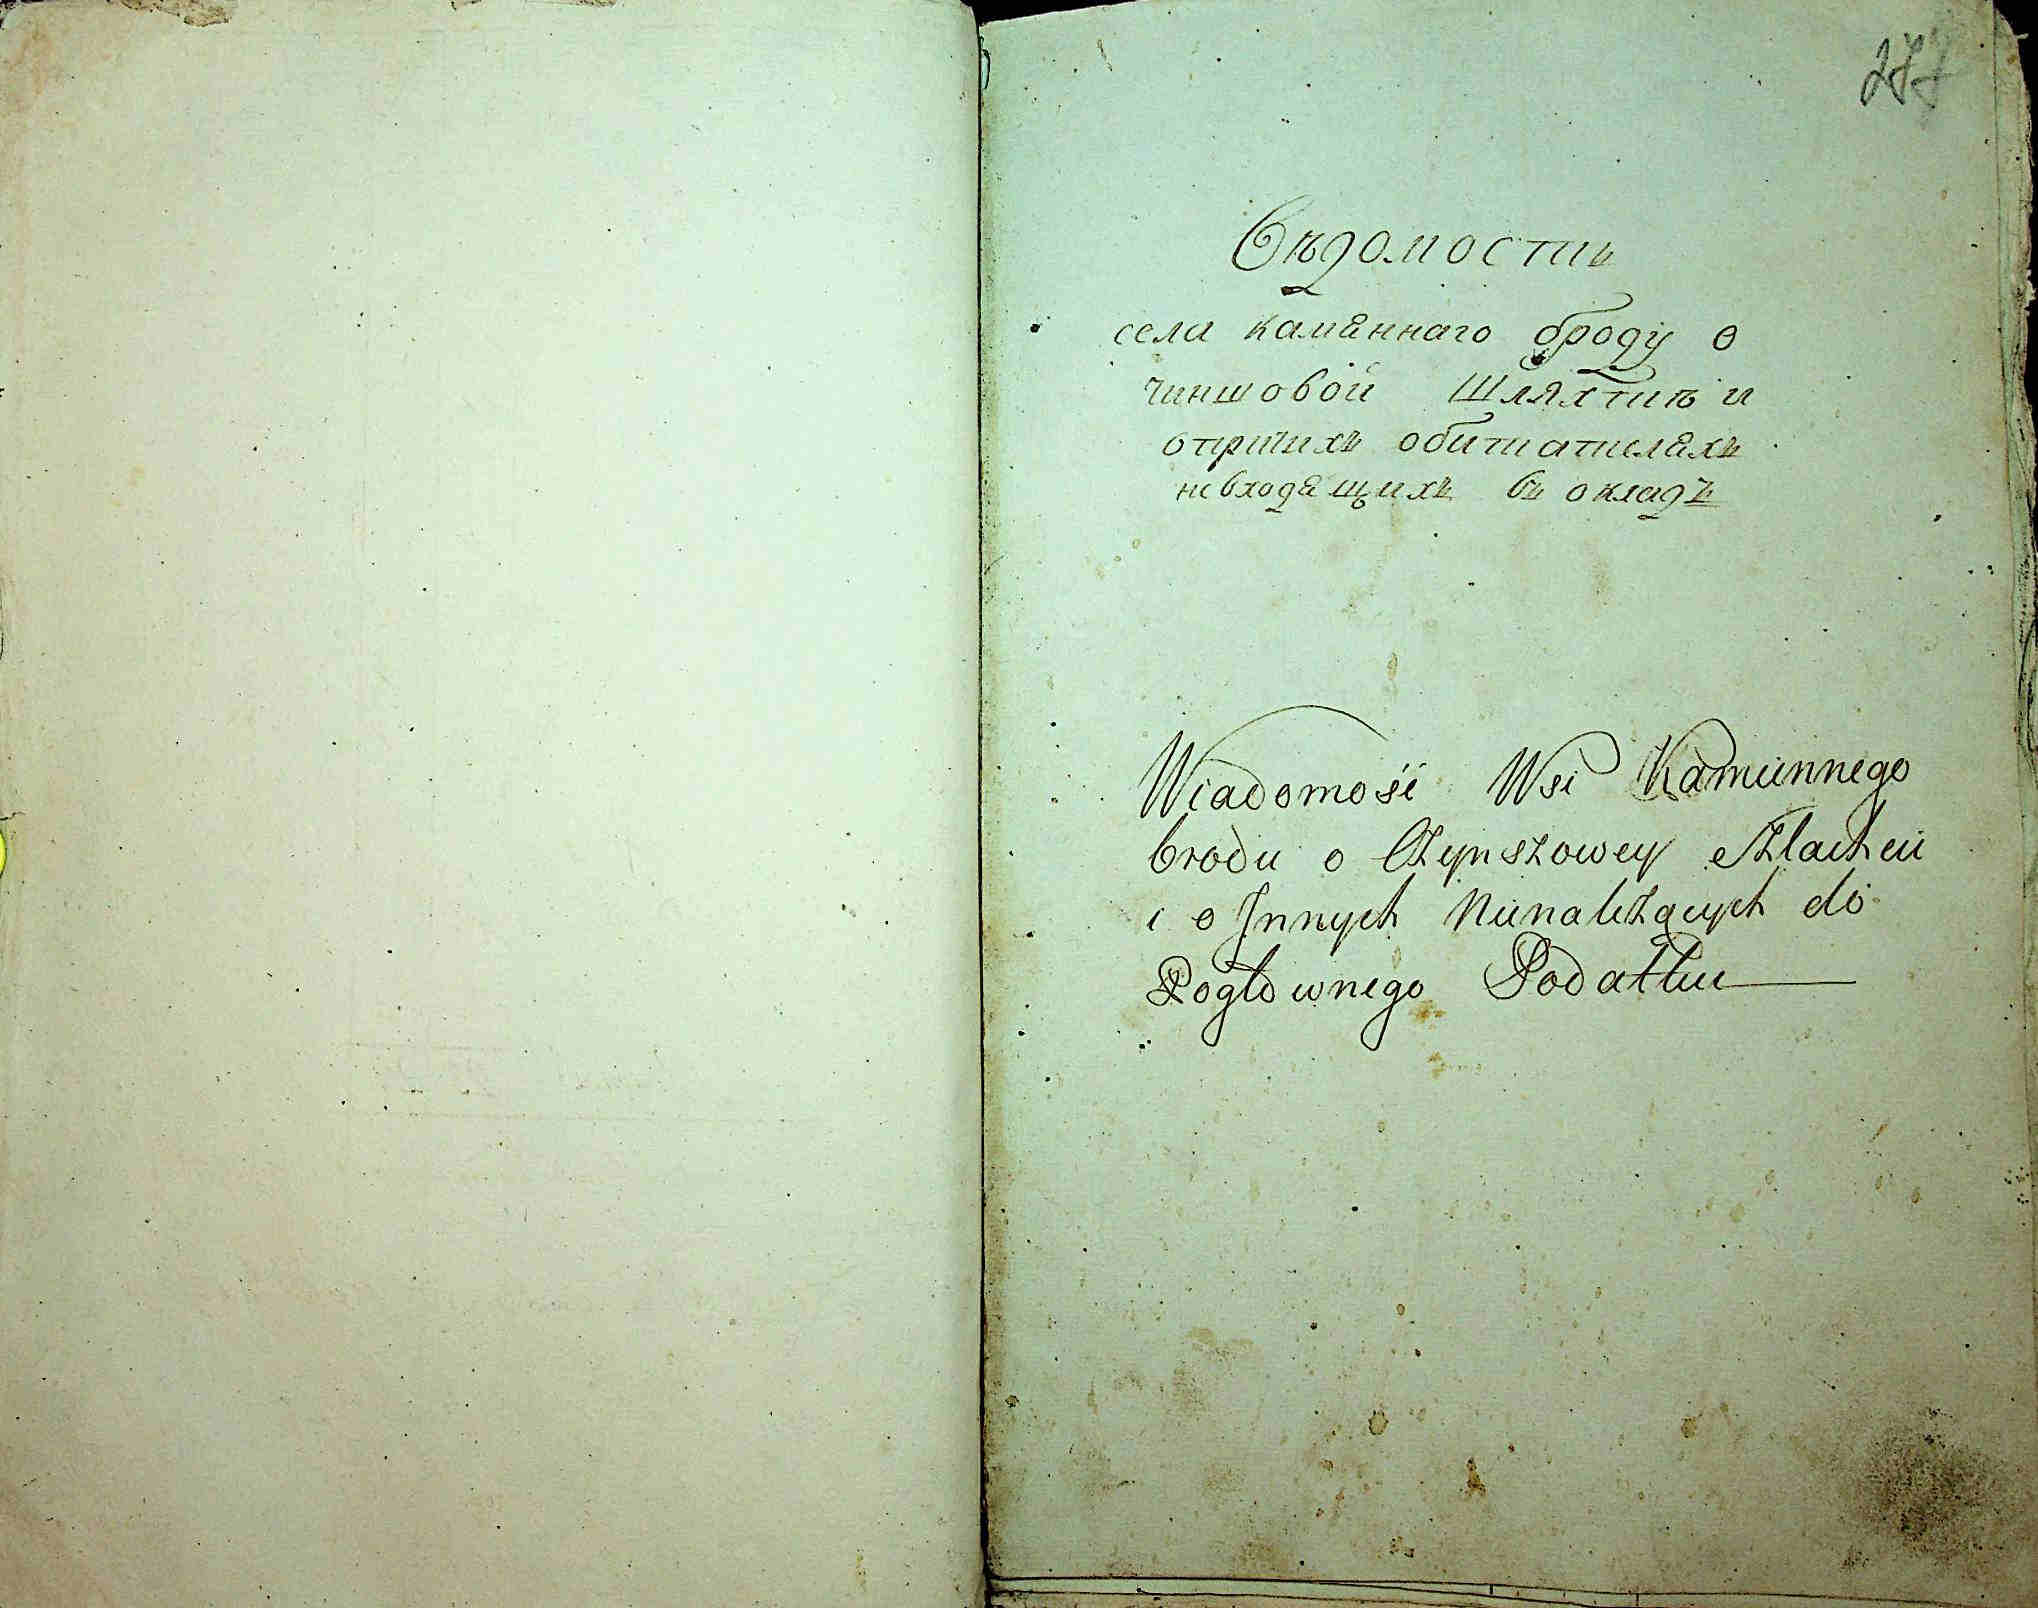 277
Вѣдомость
села каменнаго броду о
чиншовой шляхтѣ и
отричихъ обитателяхъ
невходящихъ въ окладъ
Wiadomość Wsi Kamiennego
brodu o Czynszowey Szlachcie
i o Innych Nienależących do
Pogłownego Podatku